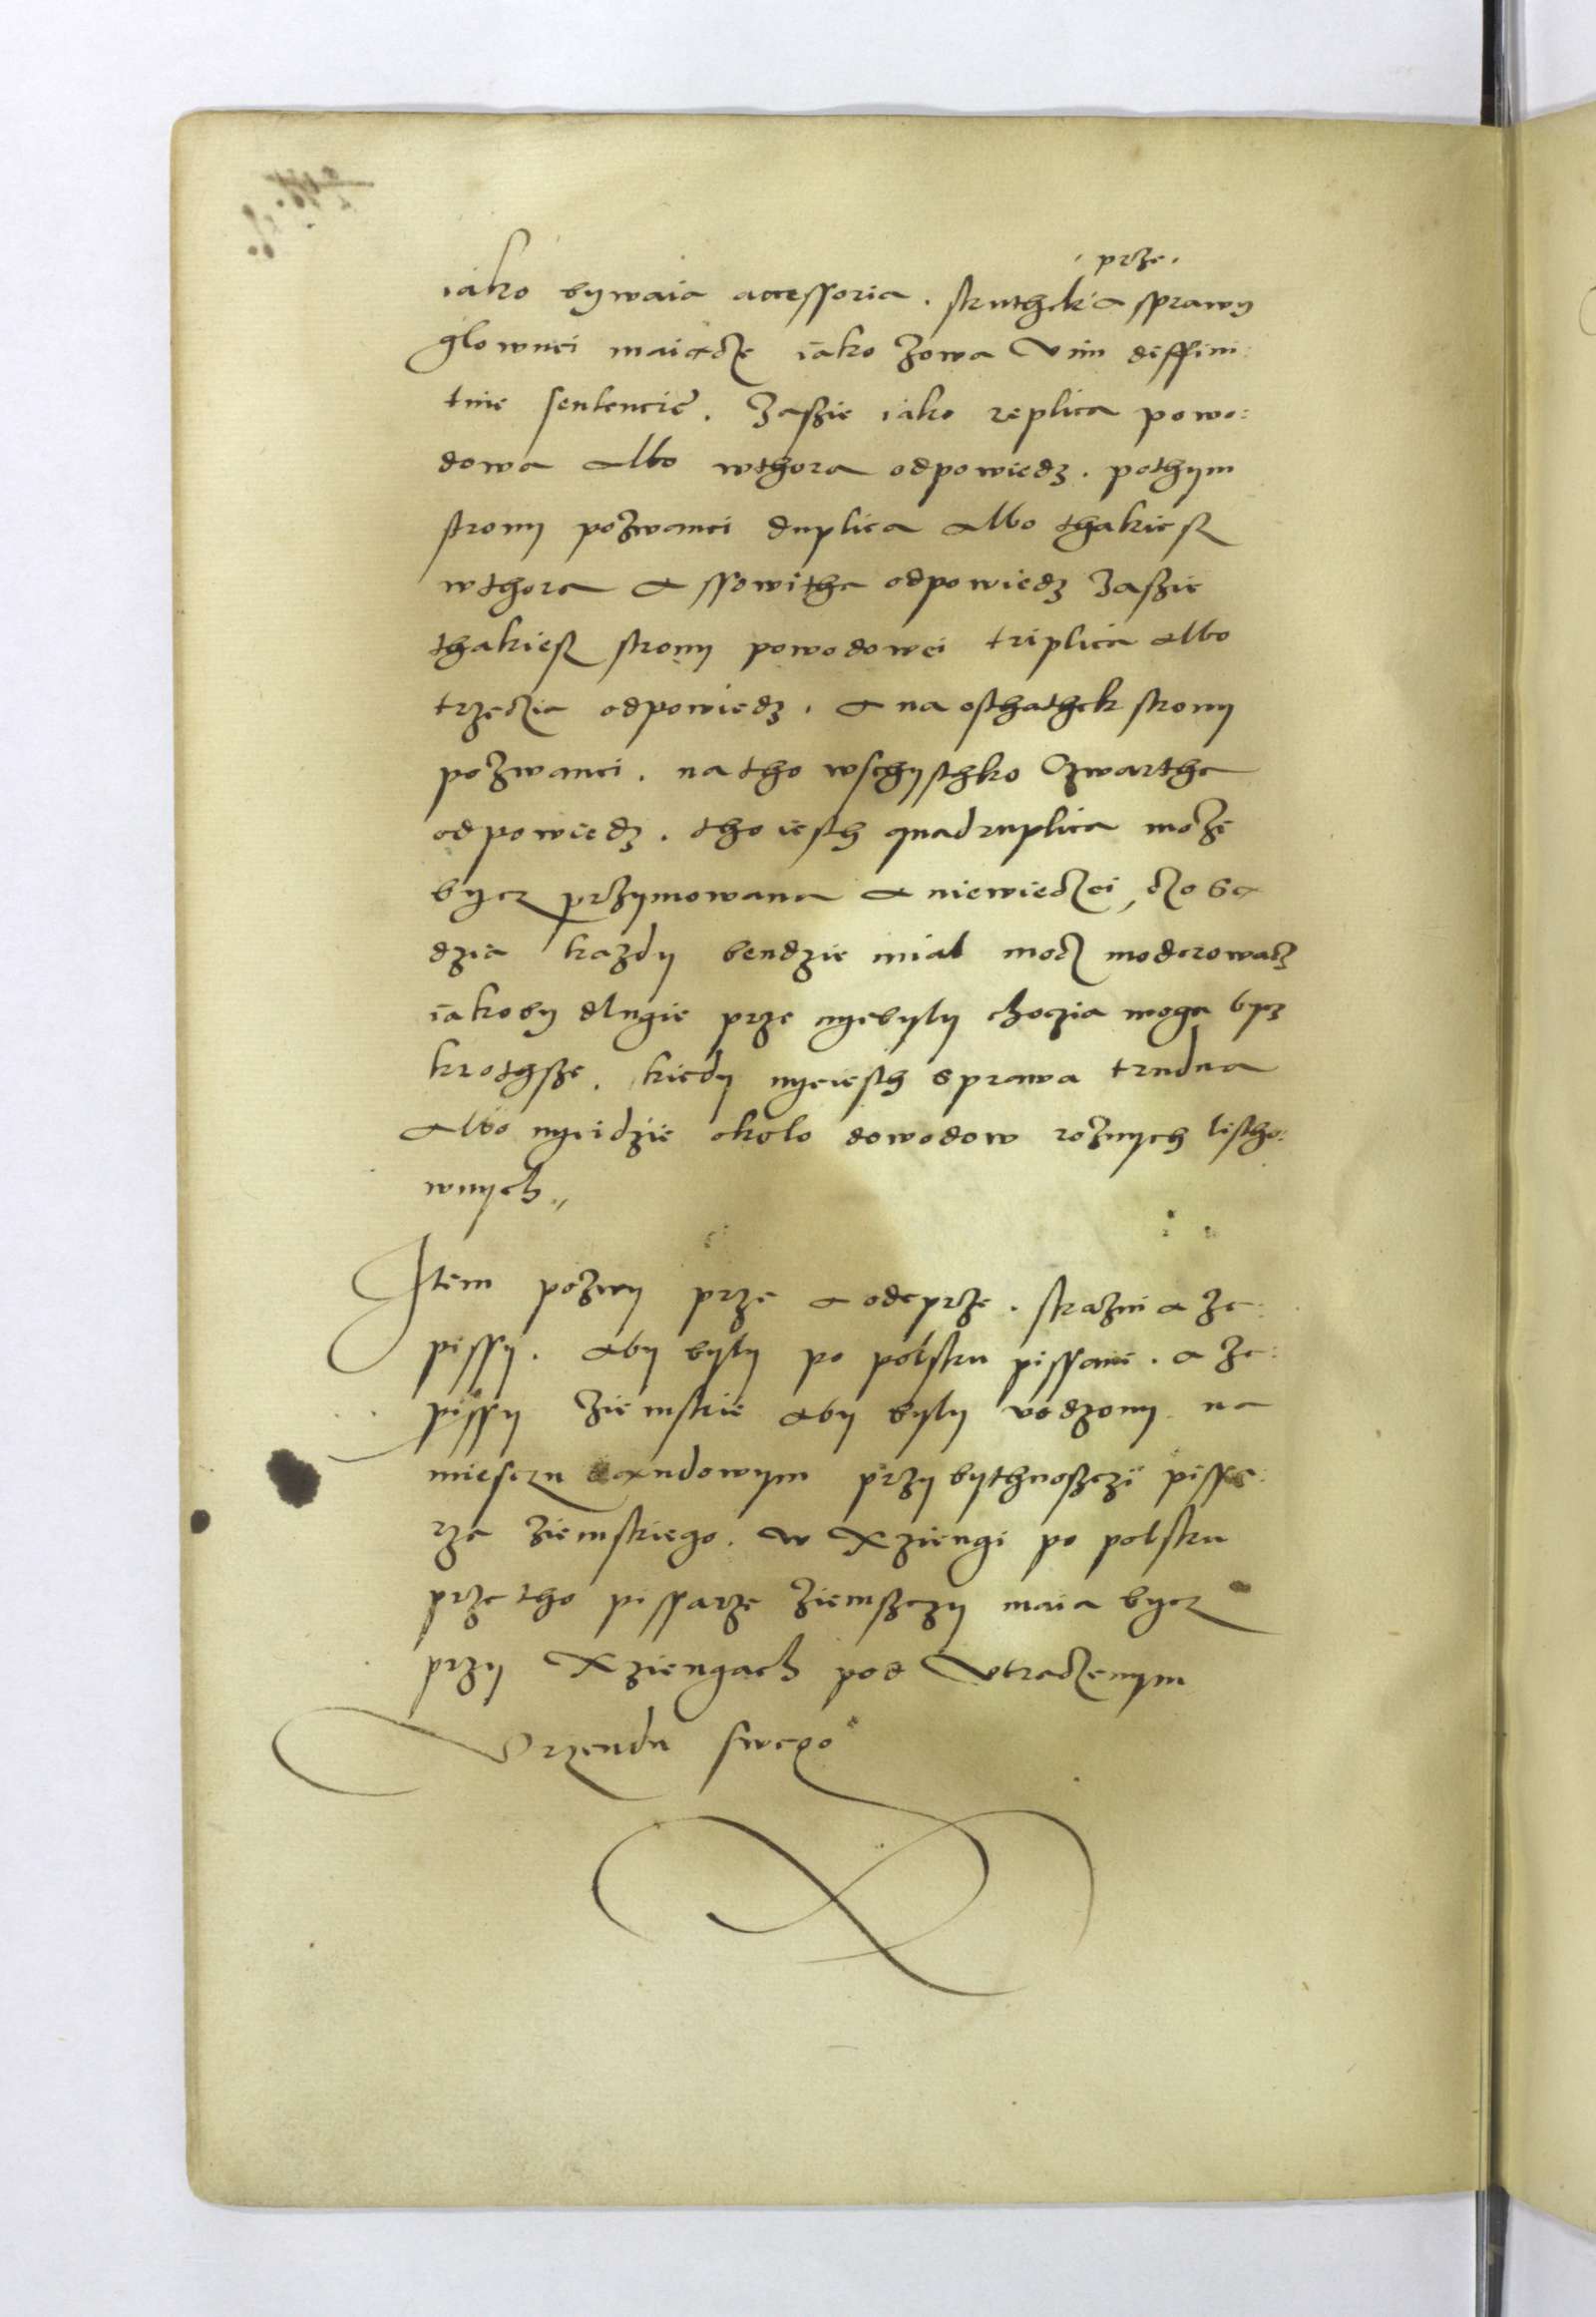 prze.
iako bywaia accessoria. skuthek a sprawy
glownei maiącze iako zowa vim diffini:
tiue sentencie. Zaszie iako replica powo:
dowa albo wthora odpowiedz. pothym
strony pozwanei duplica albo thakiesz
wthora a ssowitha odpowiedz zaszie
thakiesz strony powodowei triplica albo
trzeczia odpowiedz. a na osthathek strony
pozwanei. na tho wschysthko czwartha
odpowiedz. tho iesth quadruplica może
bycz przymowana a niewiedzei, czo są
dzia kazdy bendzie mial mocz moderowacz
iakoby dlugie prze nyebyly choczia moga bycz
krothsze. kiedy nyeiesth sprawa trudna
albo nyeidzie okolo dowodow roznych listho:
wnych„
Item pozwy prze a odeprze. skazni a za:
pissy. aby byly po polsku pissane. a za:
pissy ziemskie aby byly wodzony na
miesczu sąndowym przy bythnosczi pissa:
rza ziemskiego. w Xziengi po polsku
prze tho pissarze ziemsczy maia bycz
przy Xziengach pod vtraczenym
Vrzendu swego